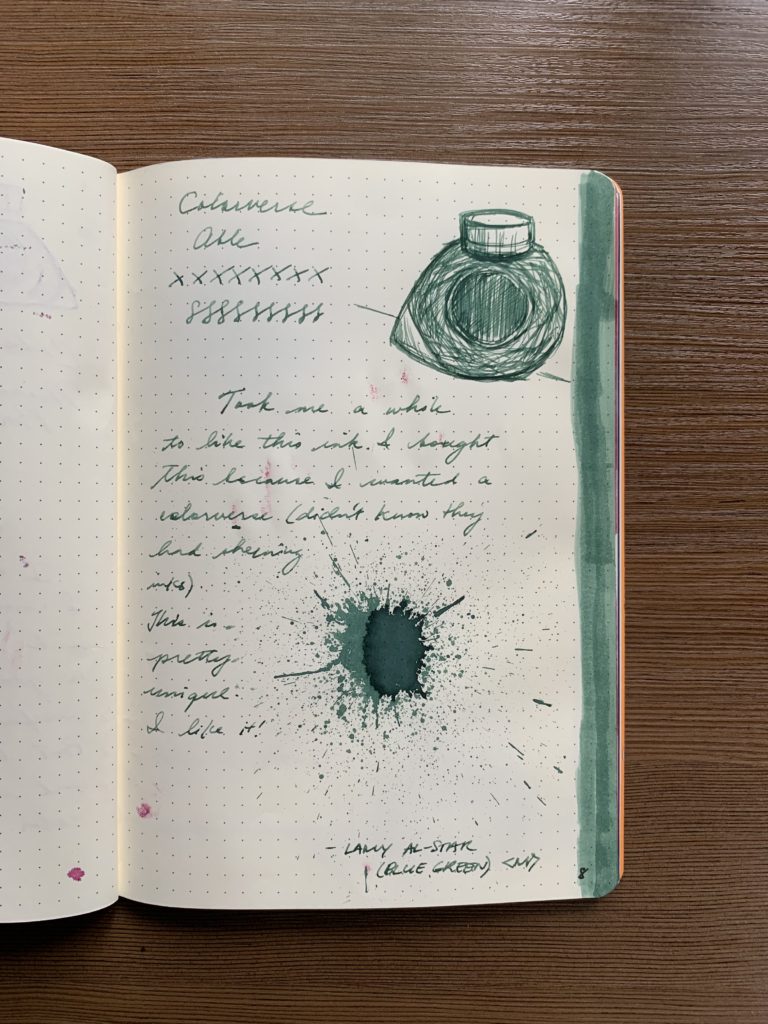 Colorverse
Able
xxxxxxxx
8888888888
Took me a while
to like this ink. I bought
this because I wanted a
colorverse (didn't know they
had sheening
inks).
This is
pretty
unique.
I like it!
- LAMY AL-STAR
(BLUE GREEN) <M>
8